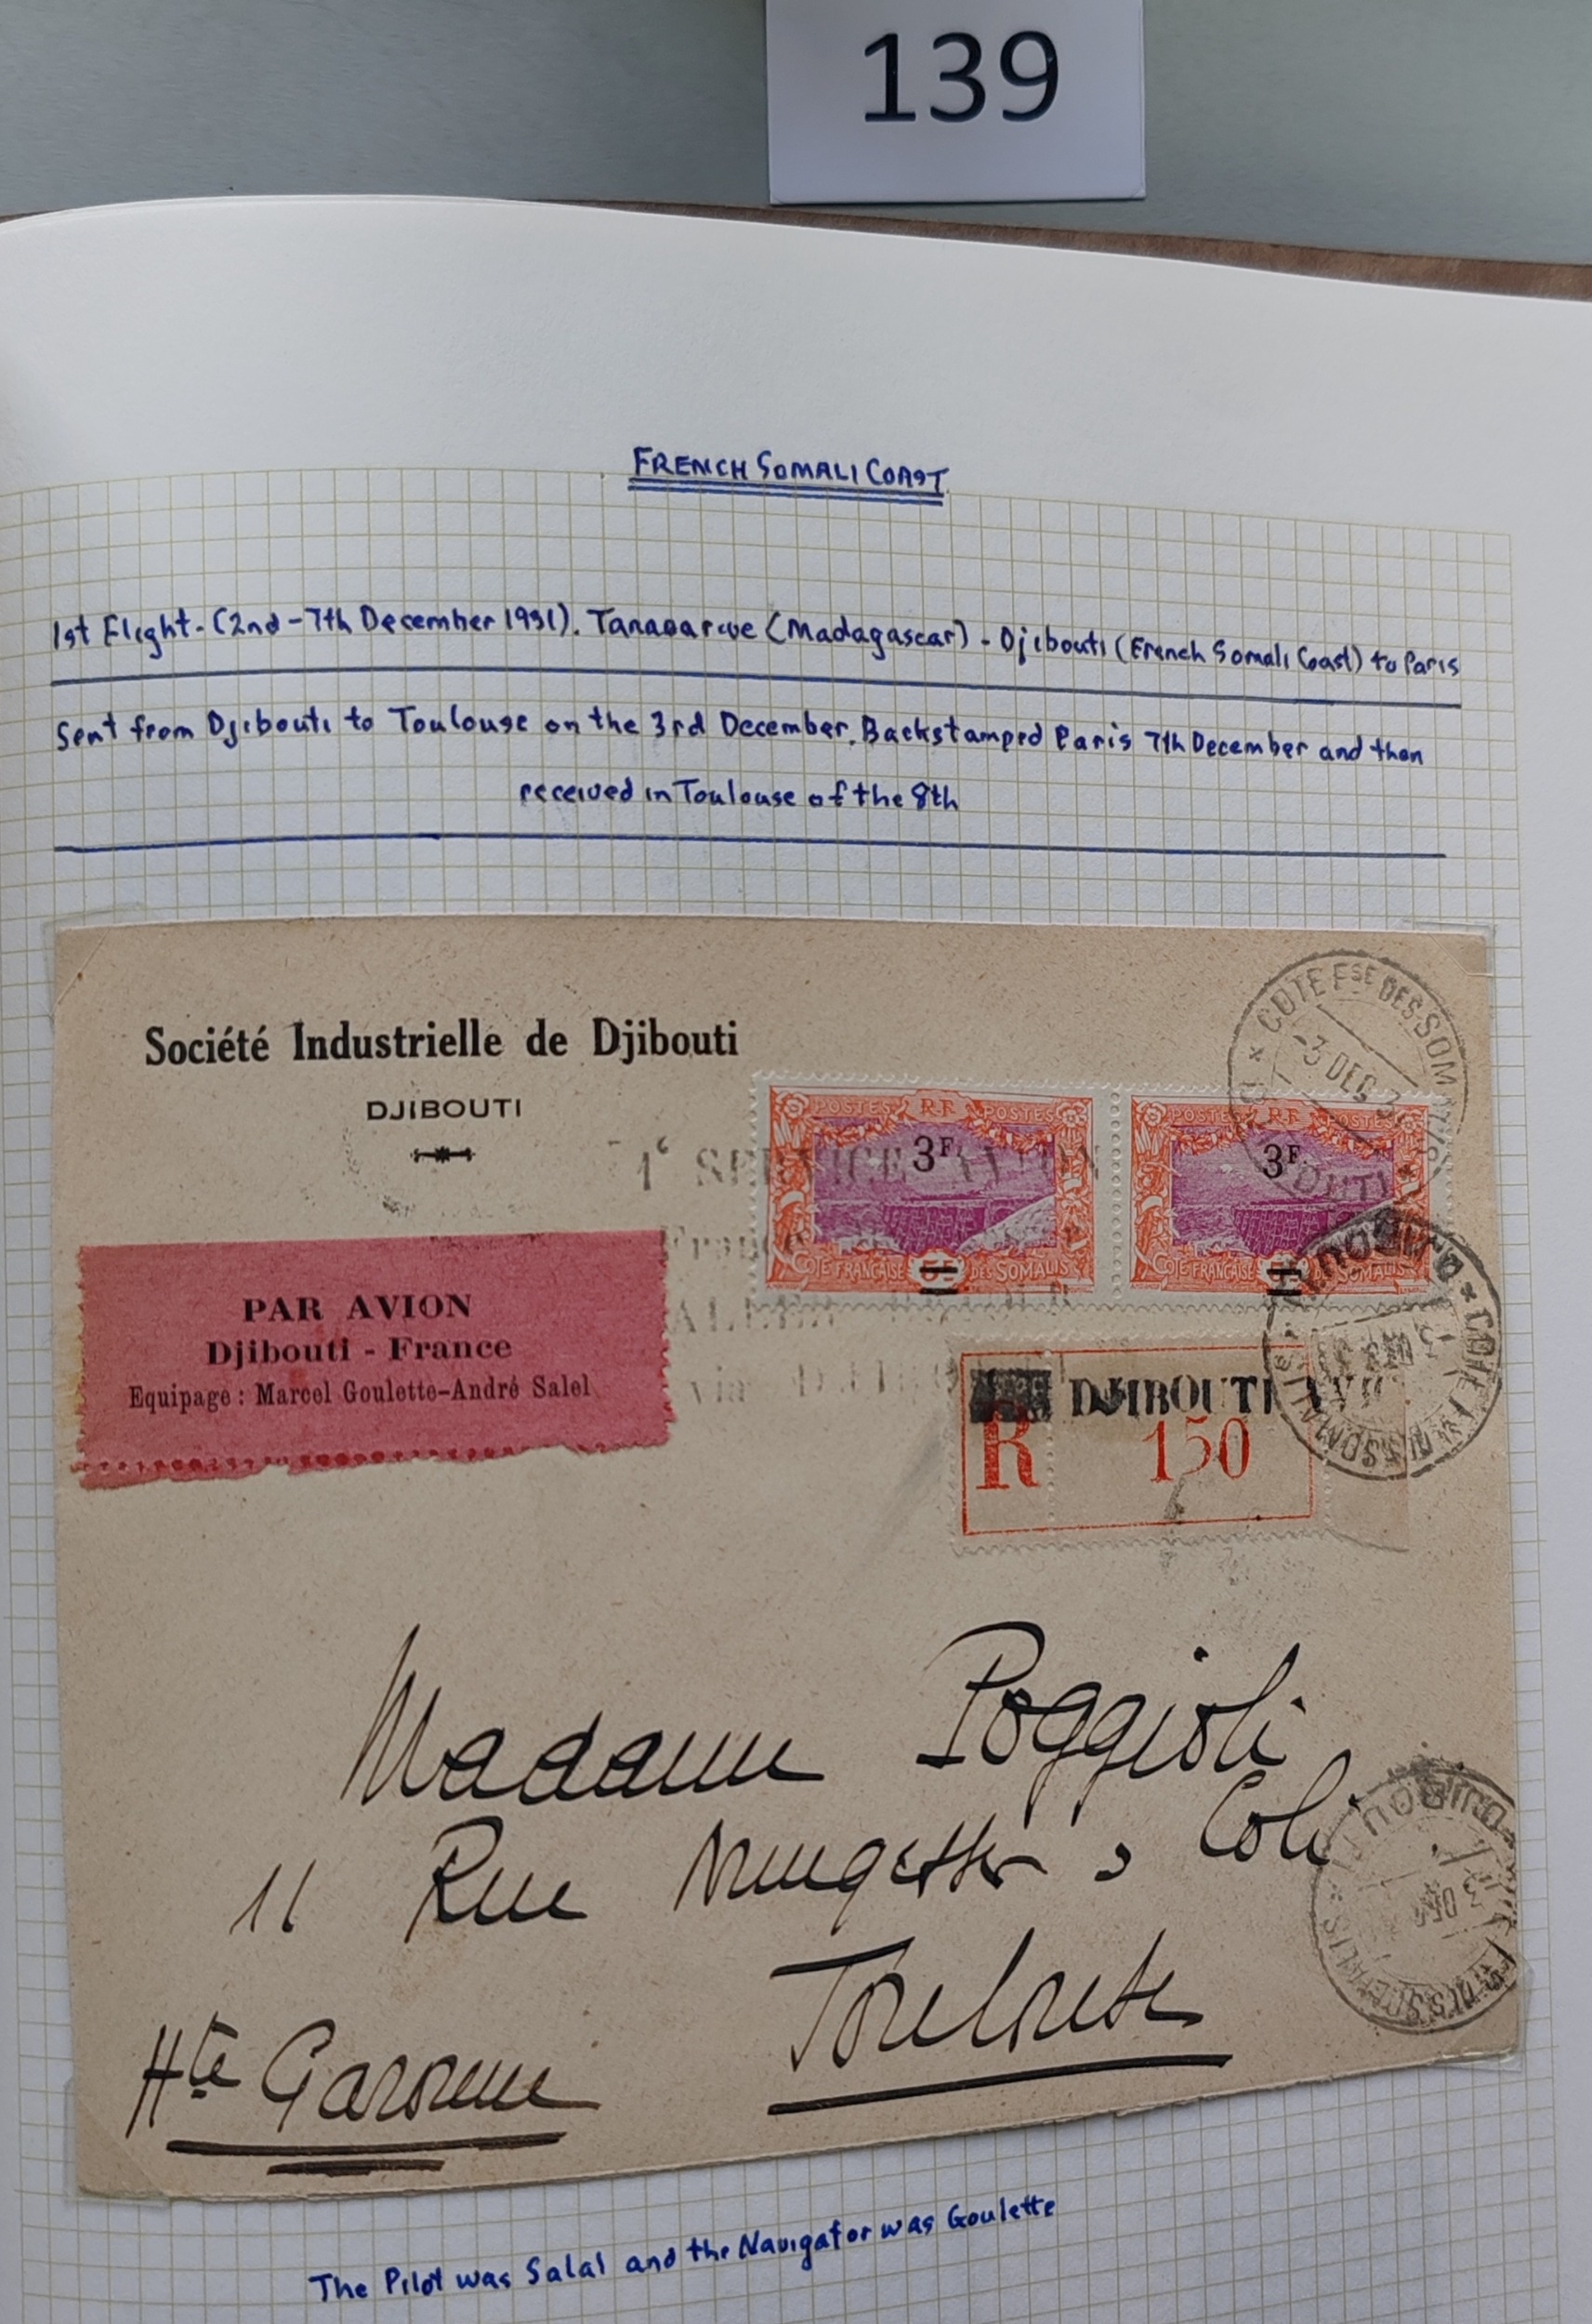 139
FRENCH SOMALI COAST
1st Flight - (2nd - 7th December 1931). Tananarive (Madagascar) - Djibouti (French Somali Coast) to Paris
Sent from Djibouti to Toulouse on the 3rd December. Backstamped Paris 7th December and then
received in Toulouse of the 8th
Société Industrielle de Djibouti
DJIBOUTI
COTE FSE DES SOM
-3 DEC 3
1e SERVICE AVION
France
via
POSTES RF POSTES
3F
COTE FRANÇAISE DES SOMALIS
POSTES RF POSTES
3F
COTE FRANÇAISE SOMALIS
PAR AVION
Djibouti - France
Equipage : Marcel Goulette-André Salel
DJIBOUTI
R 150
DJIBOUTI
Madame Poggioli
11 Rue Nungesser & Coli
Toulouse
Hte Garonne
DJIBOUTI
3 DEC
The Pilot was Salal and the Navigator was Goulette